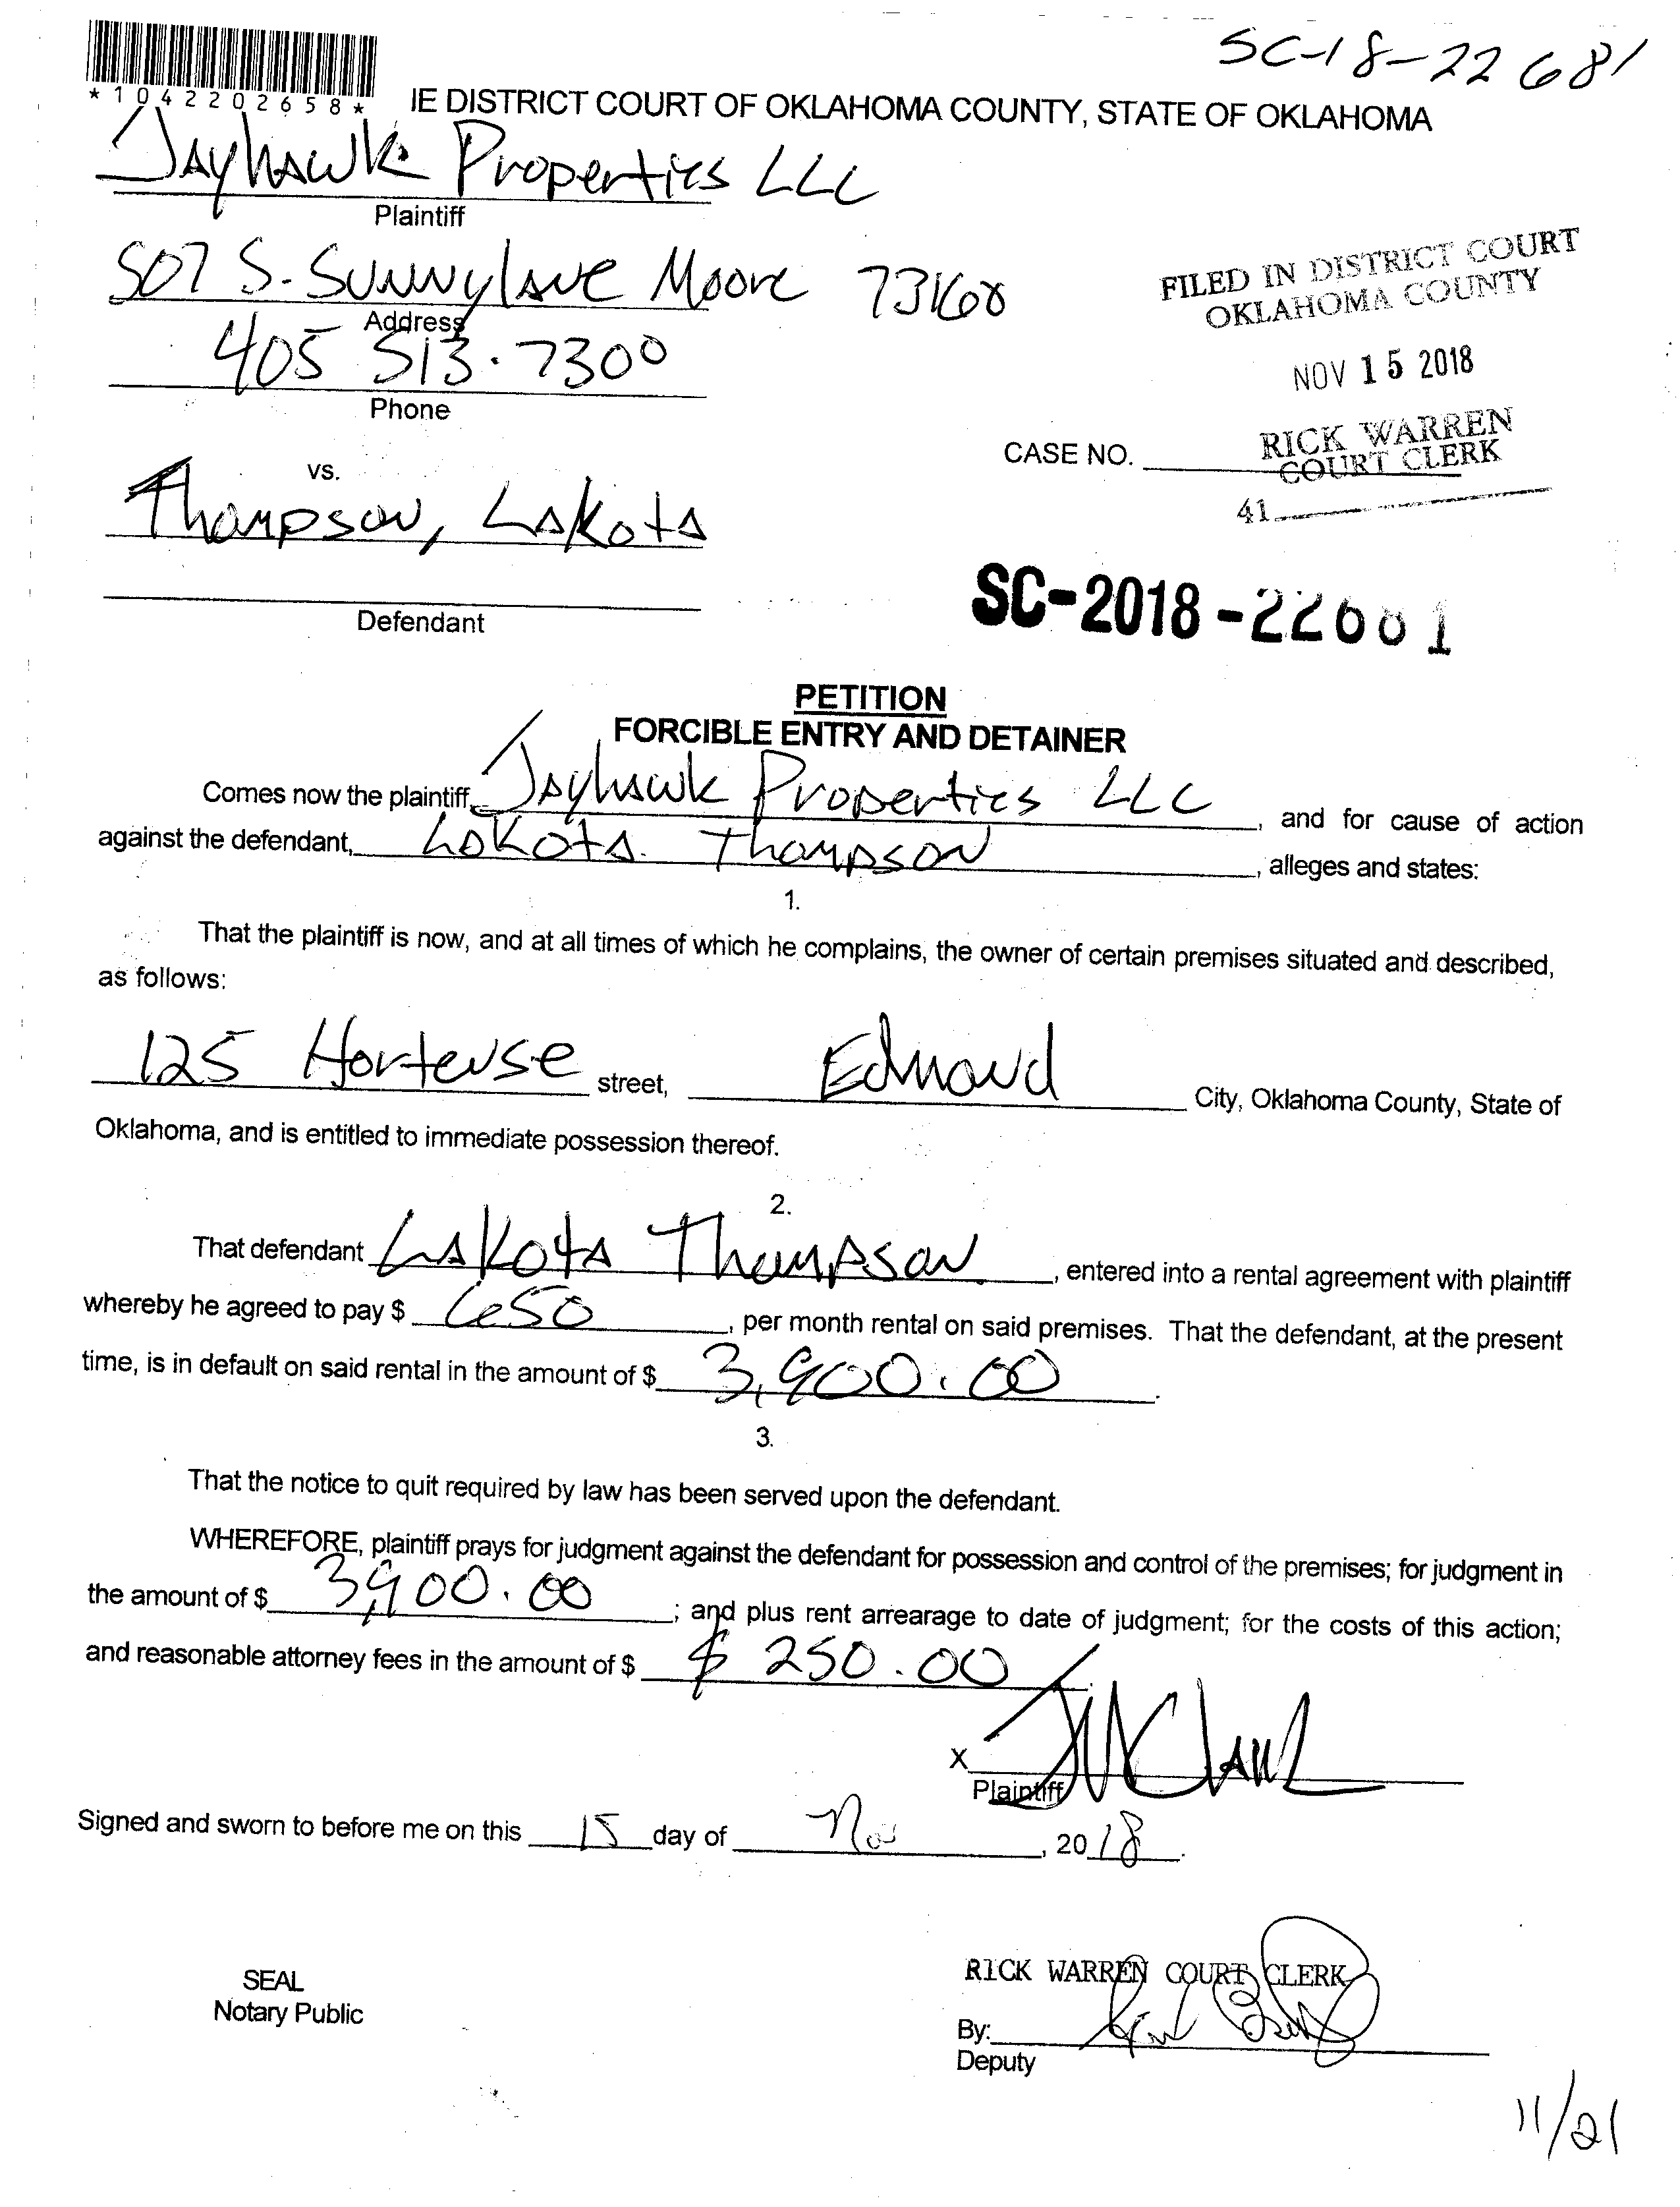 SC-18-22681
*1042202658*
IE DISTRICT COURT OF OKLAHOMA COUNTY, STATE OF OKLAHOMA
Jayhawk Properties LLC
Plaintiff
507 S. Sunnylane Moore 73160
Address
405 513.7300
Phone
FILED IN DISTRICT COURT
OKLAHOMA COUNTY
NOV 15 2018
RICK WARREN
COURT CLERK
41
CASE NO.
vs.
Thompson, Lakota
Defendant
SC-2018-22681
PETITION
FORCIBLE ENTRY AND DETAINER
Comes now the plaintiff, Jayhawk Properties LLC, and for cause of action
against the defendant, Lakota Thompson, alleges and states:
1.
That the plaintiff is now, and at all times of which he complains, the owner of certain premises situated and described,
as follows:
125 Hortense street, Edmond City, Oklahoma County, State of
Oklahoma, and is entitled to immediate possession thereof.
2.
That defendant Lakota Thompson, entered into a rental agreement with plaintiff
whereby he agreed to pay $ 650, per month rental on said premises. That the defendant, at the present
time, is in default on said rental in the amount of $ 3,900.00.
3.
That the notice to quit required by law has been served upon the defendant.
WHEREFORE, plaintiff prays for judgment against the defendant for possession and control of the premises; for judgment in
the amount of $ 3,900.00; and plus rent arrearage to date of judgment; for the costs of this action;
and reasonable attorney fees in the amount of $ $ 250.00.
X
Plaintiff
Signed and sworn to before me on this 15 day of Nov, 2018.
SEAL
Notary Public
RICK WARREN COURT CLERK
By:
Deputy
11/21